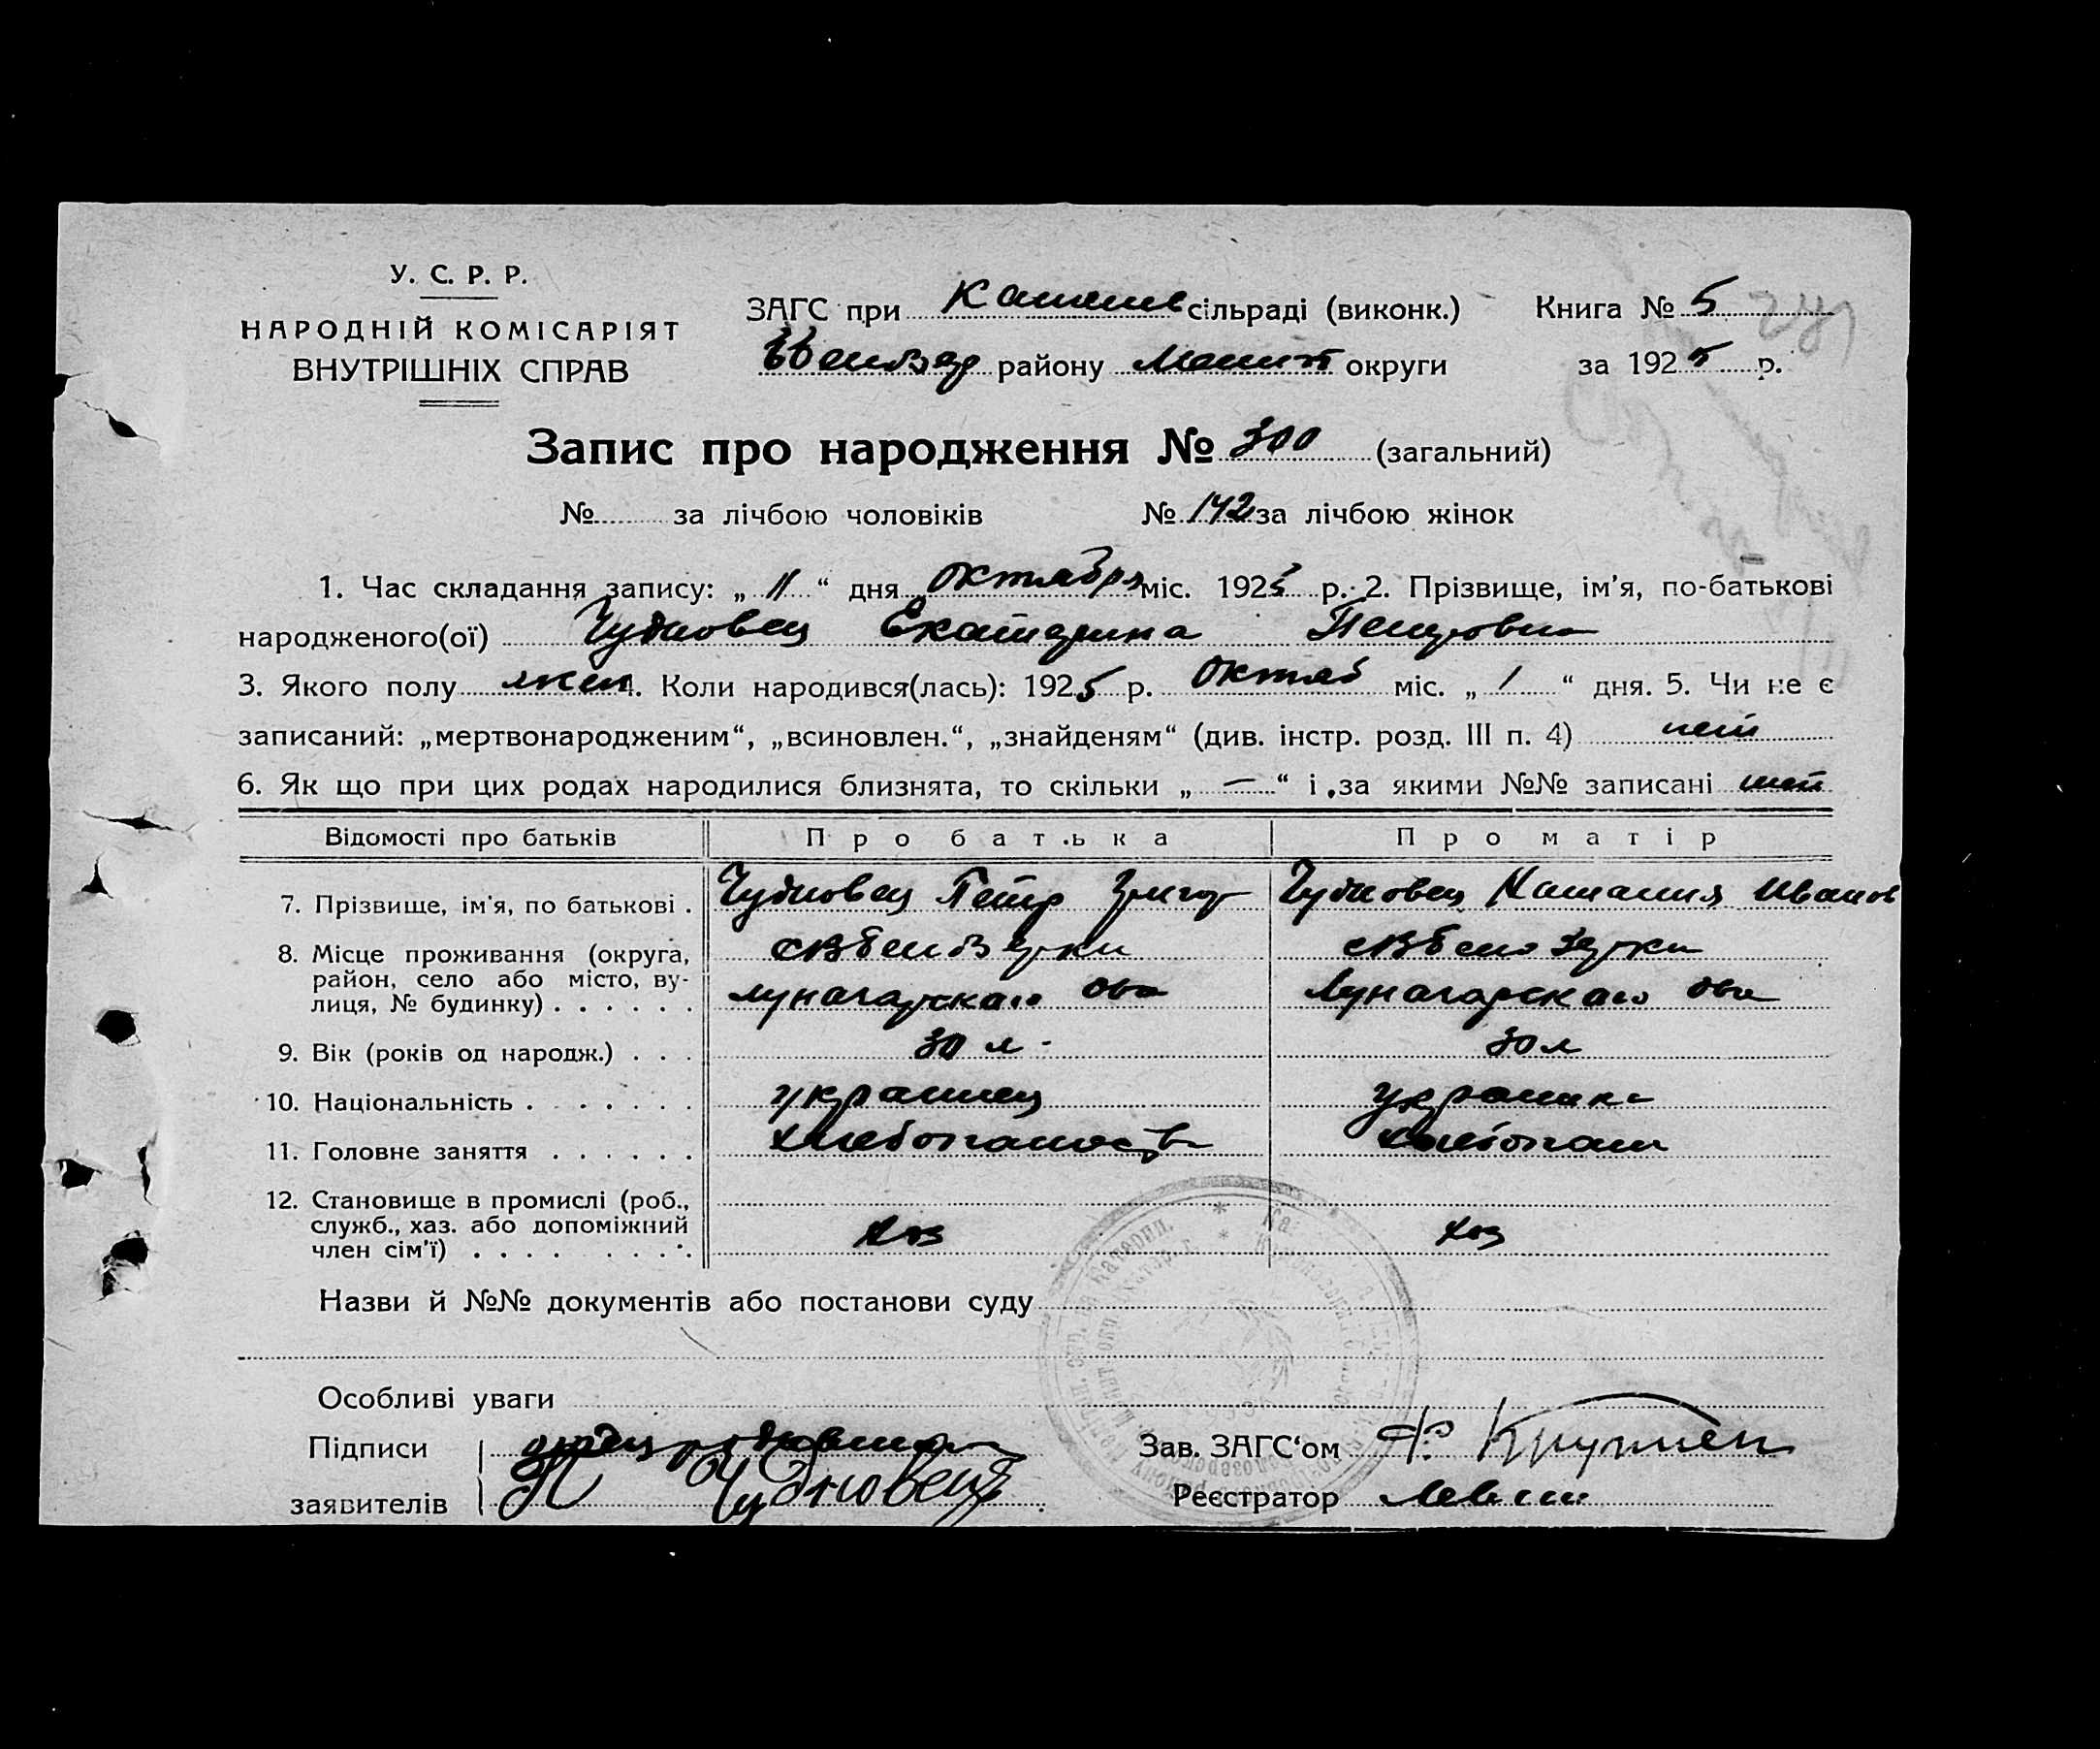 У. С. Р. Р.
НАРОДНІЙ КОМІСАРІЯТ
ВНУТРІШНІХ СПРАВ
ЗАГС при сільраді (виконк.) Книга № 5
району Мелит округи за 1925 р.
Запис про народження № 300 (загальний)
№ за лічбою чоловіків № 142 за лічбою жінок
1. Час складання запису: „ 11 “ дня октября міс. 1925 р. 2. Прізвище, ім’я, по-батькові
народженого(ої) Чудновец Екатерина Петровна
3. Якого полу жен 4. Коли народився(лась): 1925 р. Октяб міс. „ 1 “ дня. 5. Чи не є
записаний: „мертвонародженим“, „всиновлен.“, „знайденям“ (див. інстр. розд. III п. 4) нет
6. Як що при цих родах народилися близнята, то скільки „ — “ і за якими №№ записані нет
Відомості про батьків Про батька Про матір
7. Прізвище, ім’я, по батькові . Чудновец Петр Григор Чудновец Наталия Иванов
8. Місце проживання (округа,
район, село або місто, ву-
лиця, № будинку) . . . . . .
9. Вік (років од народж.) . . . 30 л. 30 л
10. Національність . . . . . . . украинец украинка
11. Головне заняття . . . . . . хлебопашеств хлебопаш
12. Становище в промислі (роб.,
служб., хаз. або допоміжний
член сім’ї) . . . . . . . . хоз хоз
Назви й №№ документів або постанови суду
Особливі уваги
Підписи
заявителів П Чудновец
Зав. ЗАГС‘ом
Реєстратор